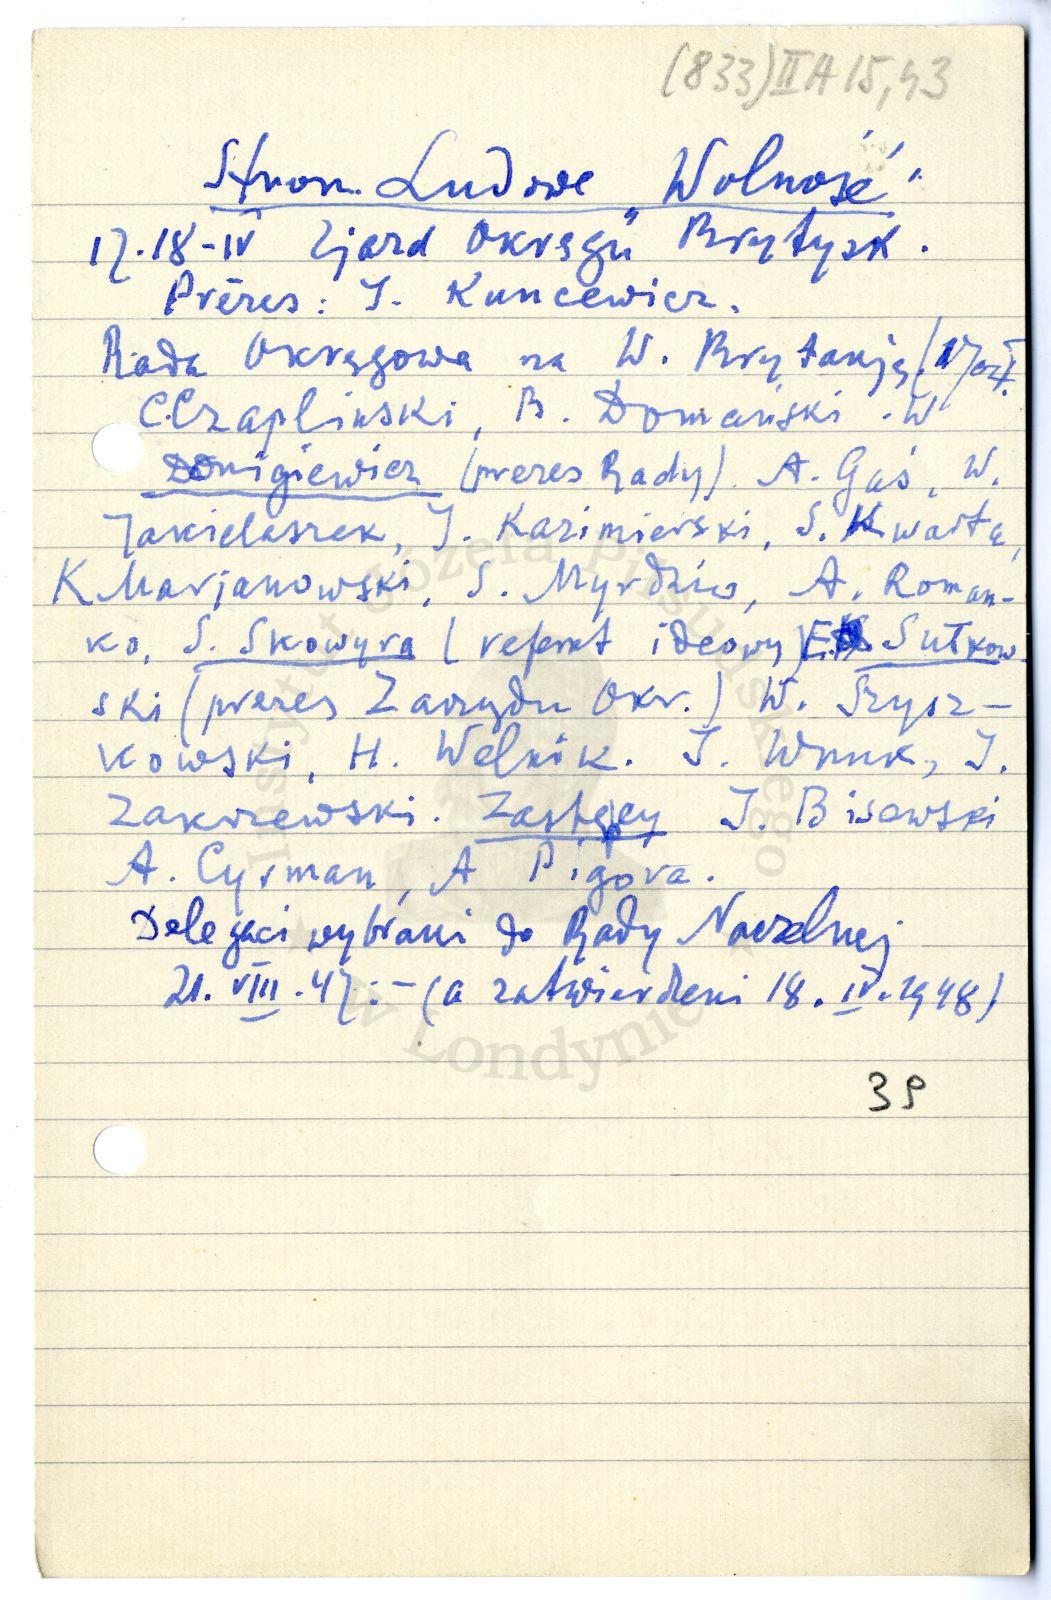 (833) II A 15,43
Stron. Ludowe "Wolność"
17.18-IV Zjazd Okręgu Brytysk.
Prezes: J. Kuncewicz.
Rada Okręgowa na W. Brytanję
C. Czaplinski, B. Domański. W
Donigiewicz (prezes Rady). A. Gaś, W.
Jakielaszek, J. Kazimierski, S. Kwarta,
K Marjanowski, S. Myrdzio, A. Roman-
ko, S. Skowyra (referat ideowy) E. Sutkow
ski (prezes Zarządu Okr.) W. Szysz-
kowski, H. Welnik. J. Wnuk, J.
Zakrzewski. Zastępcy J. Bisewski
A. Cyrman, A Pigora.
Delegaci wybrani do Rady Naczelnej
21. VIII. 47: - (a zatwierdzeni 18. IV. 1948)
39
Instytut Józefa Piłsudskiego
w Londynie